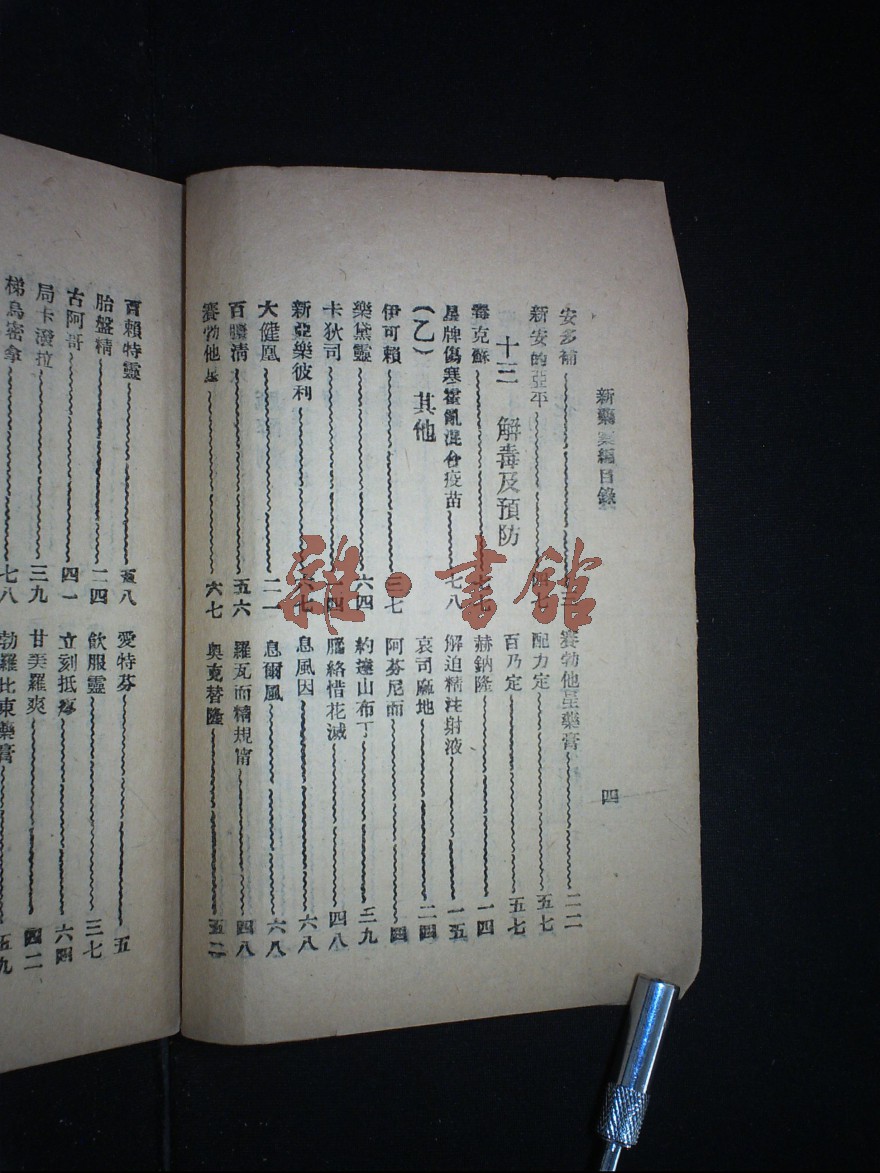 新藥彙編目錄
四
安多補
新安的亞平
十三 解毒及預防
毒克蘇
星牌傷寒霍亂混合疫苗 七八
(乙) 其他
伊可賴 三七
樂黛靈 六四
卡狄司
新亞樂彼利
大健凰 二一
百體清 五六
賽勃他星 六七
賽勃他星藥膏 二二
配力定 五七
百乃定 五七
赫鈉隆 一四
解迫精注射液 一五
哀司麻地 二四
阿芬尼而 四
約達山布丁 三九
腦絡惜花滅 四八
息風因 六八
息爾風 六八
羅瓦而精規甯 四八
奧克替隆 五二
百賴特靈 八
胎盤精 二四
古阿哥 四一
局卡潑拉 三九
梯鳥密拿 七八
愛特芬 五
飲服靈 三七
立刻抵疼 六四
甘美羅爽 四二
勃羅比東藥膏 五九
雜·書館